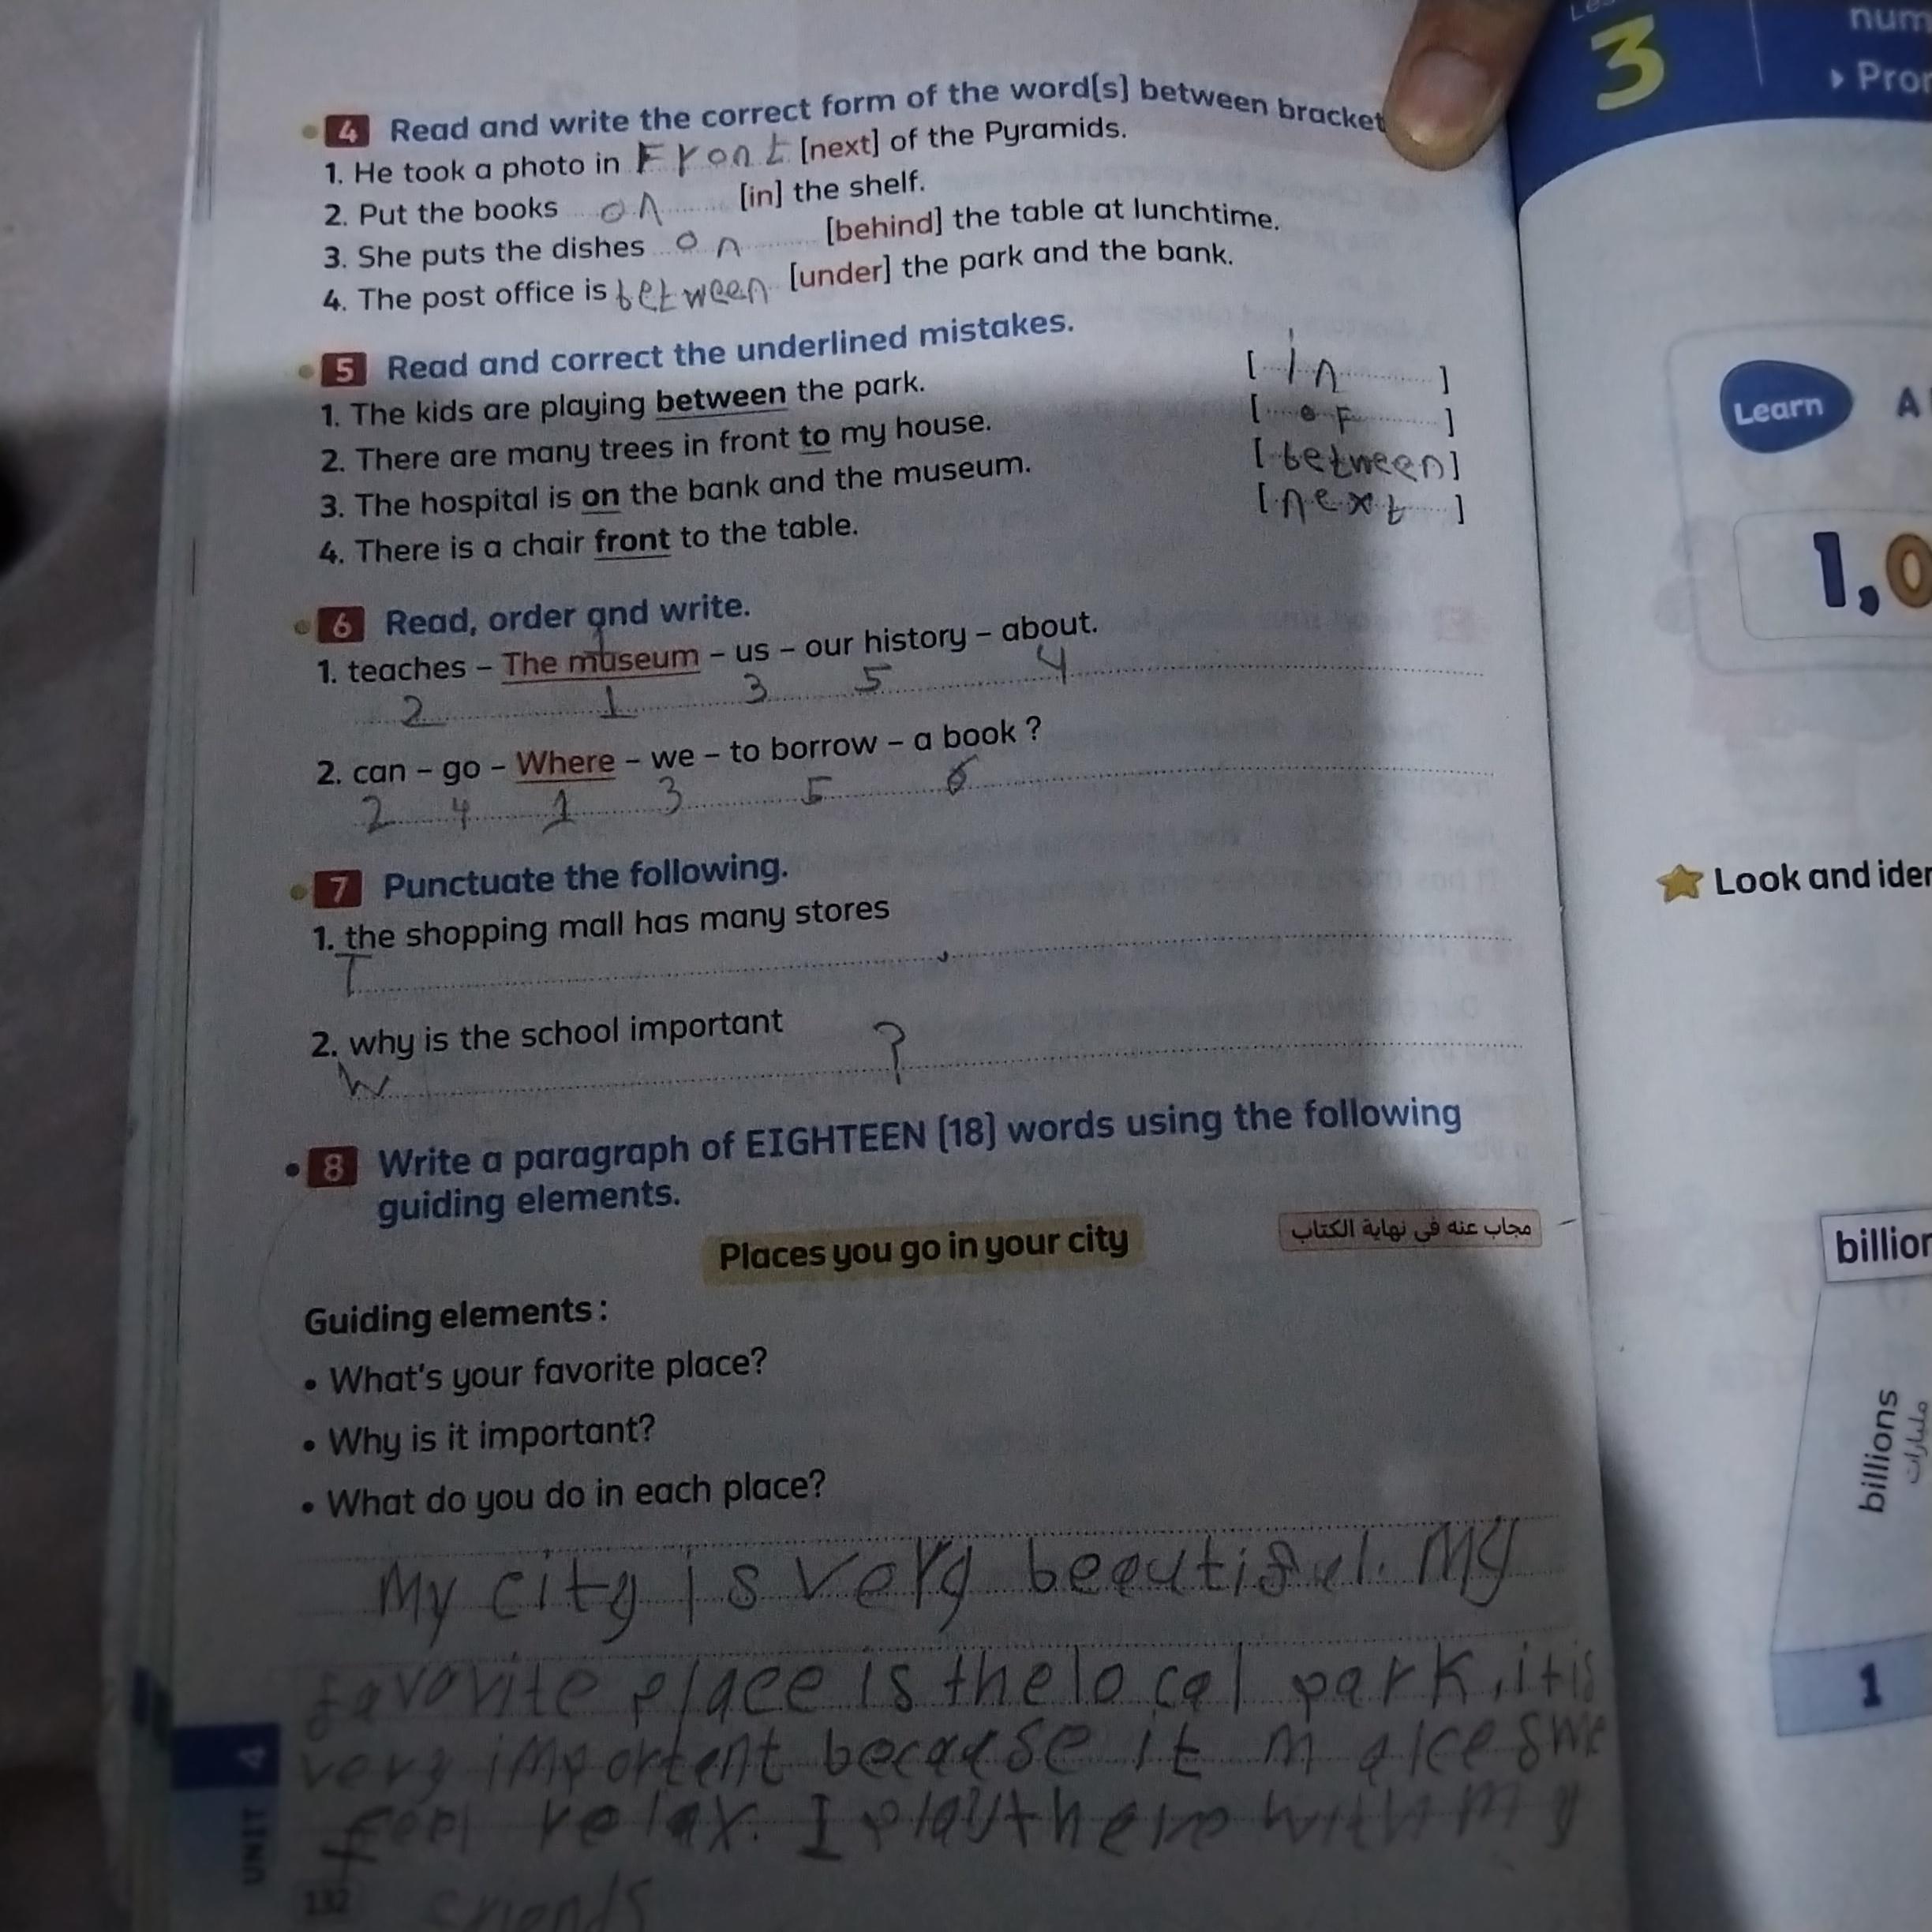 4 Read and write the correct form of the word[s] between bracket
1. He took a photo in Front [next] of the Pyramids.
2. Put the books on [in] the shelf.
3. She puts the dishes on [behind] the table at lunchtime.
4. The post office is between [under] the park and the bank.
5 Read and correct the underlined mistakes.
1. The kids are playing between the park. [in]
2. There are many trees in front to my house. [oF]
3. The hospital is on the bank and the museum. [between]
4. There is a chair front to the table. [next]
6 Read, order and write.
1. teaches – The museum – us – our history – about.
2 1 3 5 4
2. can – go – Where – we – to borrow – a book ?
2 4 1 3 5 6
7 Punctuate the following.
1. the shopping mall has many stores
T .
2. why is the school important
W ?
8 Write a paragraph of EIGHTEEN [18] words using the following
guiding elements.
Places you go in your city
مجاب عنه في نهاية الكتاب
Guiding elements :
• What's your favorite place?
• Why is it important?
• What do you do in each place?
My city is very beautiful. My
favorite place is the local park, it is
very important because it makes me
feel relax. I play there with my
friends
UNIT 4
132
3
num
Pror
Learn
A
1,0
Look and iden
billion
billions
مليارات
1